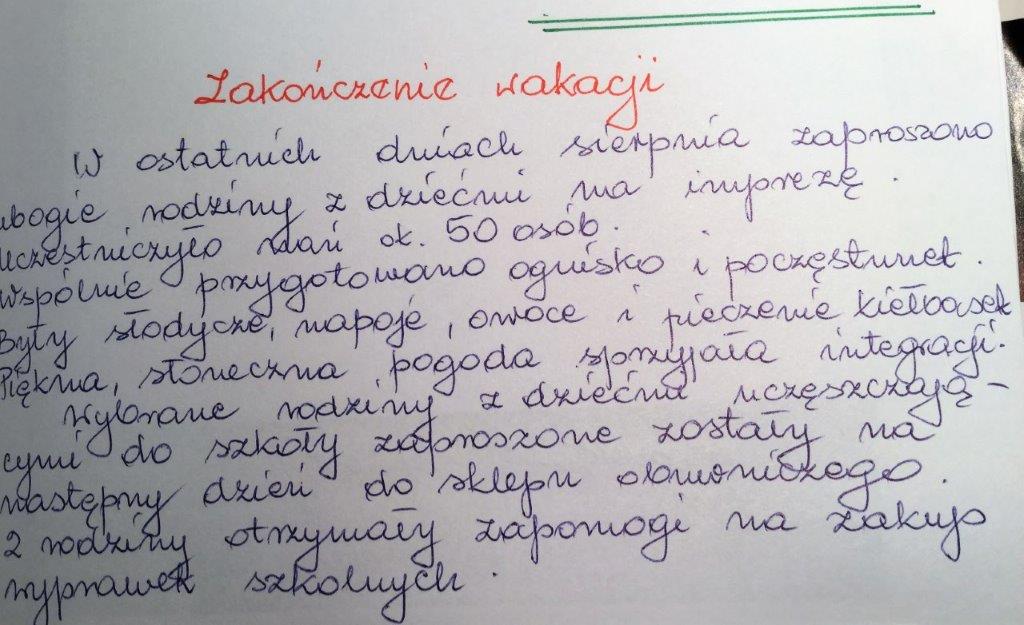 Zakończenie wakacji
W ostatnich dniach sierpnia zaproszono
ubogie rodziny z dziećmi na imprezę.
Uczestniczyło w niej ok. 50 osób.
Wspólnie przygotowano ognisko i poczęstunek.
Były słodycze, napoje, owoce i pieczenie kiełbasek
Piękna, słoneczna pogoda sprzyjała integracji.
Wybrane rodziny z dziećmi uczęszczają-
cymi do szkoły zaproszone zostały na
następny dzień do sklepu obuwniczego.
2 rodziny otrzymały zapomogi na zakup
wyprawek szkolnych.